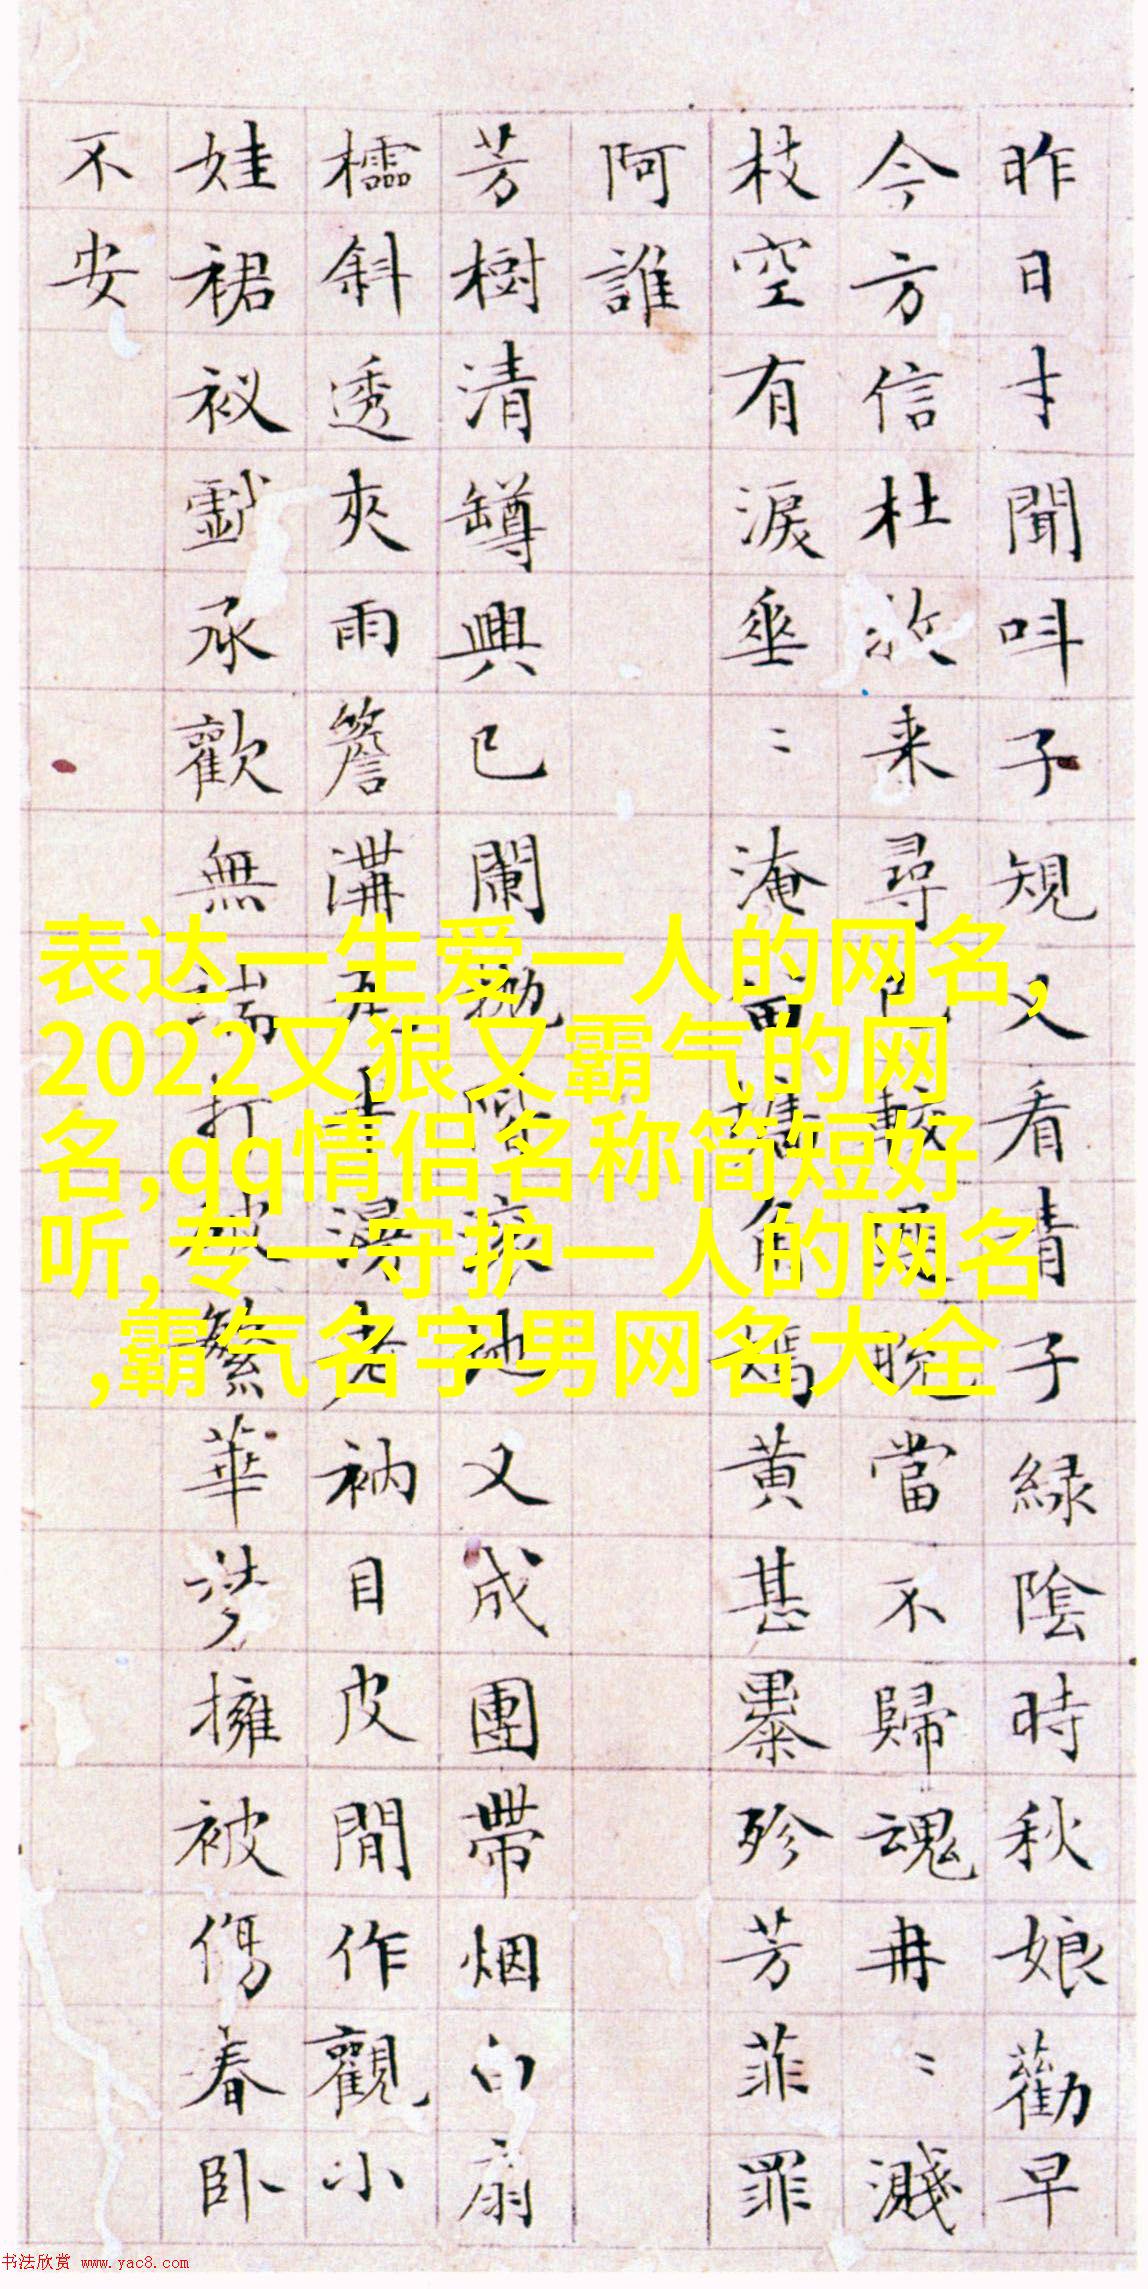 昨日才聞叫子規又看青子緑陰時秋娘勸早
今方信杜牧来尋較晚當不歸魂冉〻濺
枝空有淚垂〻淹留角嫣黄甚纍殄芳菲罪
阿誰
芳樹清罇興已闌拋滚地又成團帶烟白扇
櫺斜透夾雨簷溝老衲目皮閒作觀小
娃裙衩戲承歡無端打繁華夢擁被傷春卧
不安
表达一生爱一人的网名,
2022又狠又霸气的网
名,qq情侣名称简短好
听,专一守护一人的网名
,霸气名字男网名大全
书法欣赏 www.yac8.com